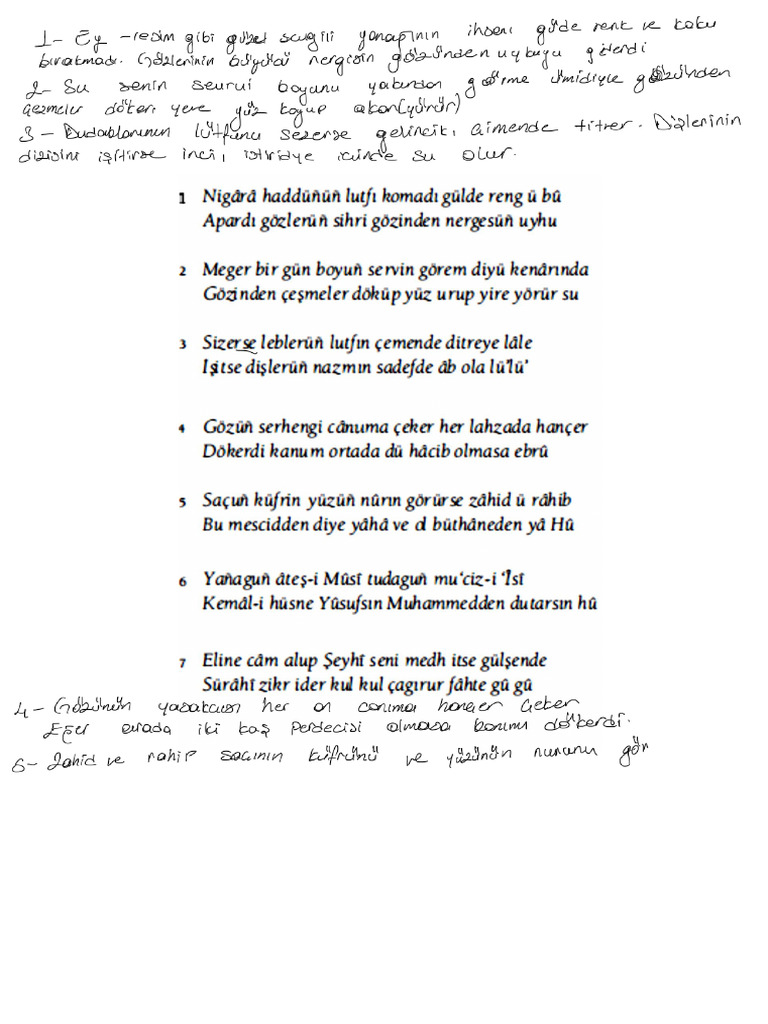 1- Ey -resim gibi güzel sevgili yanağının ihsanı gülde renk ve koku
bırakmadı. Gözlerinin büyüsü nergisin gözünden uykuyu götürdi
2- Su senin servi boyunu yakından görme ümidiyle gözünden
çeşmeler döker yere yüz koyup akar(yürür)
3- Dudaklarının lütfunu sezerse gelincik, çimende titrer. Dişlerinin
dizisini işitirse inci, istiridye içinde su olur.
1 Nigârâ haddüñüñ lutfı komadı gülde reng ü bû
Apardı gözlerüñ sihri gözinden nergesüñ uyhu
2 Meger bir gün boyuñ servin görem diyü kenârında
Gözinden çeşmeler döküp yüz urup yire yörür su
3 Sizerse leblerüñ lutfın çemende ditreye lâle
İşitse dişlerüñ nazmın sadefde âb ola lü'lü'
4 Gözüñ serhengi cânuma çeker her lahzada hançer
Dökerdi kanum ortada dü hâcib olmasa ebrû
5 Saçuñ küfrin yüzüñ nûrın görürse zâhid ü râhib
Bu mescidden diye yâhâ ve ol büthâneden yâ Hû
6 Yañaguñ âteş-i Mûsî tudaguñ mu‘ciz-i ‘Isî
Kemâl-i hüsne Yûsufsın Muhammedden dutarsın hû
7 Eline câm alup Şeyhî seni medh itse gülşende
Sürâhî zikr ider kul kul çagırur fâhte gû gû
4- Gözünün yasakcısı her an canıma hançer çeker
Eğer orada iki kaş perdecisi olmasa kanımı dökerdi.
5- Zahid ve rahip saçının küfrünü ve yüzünün nurunu gör